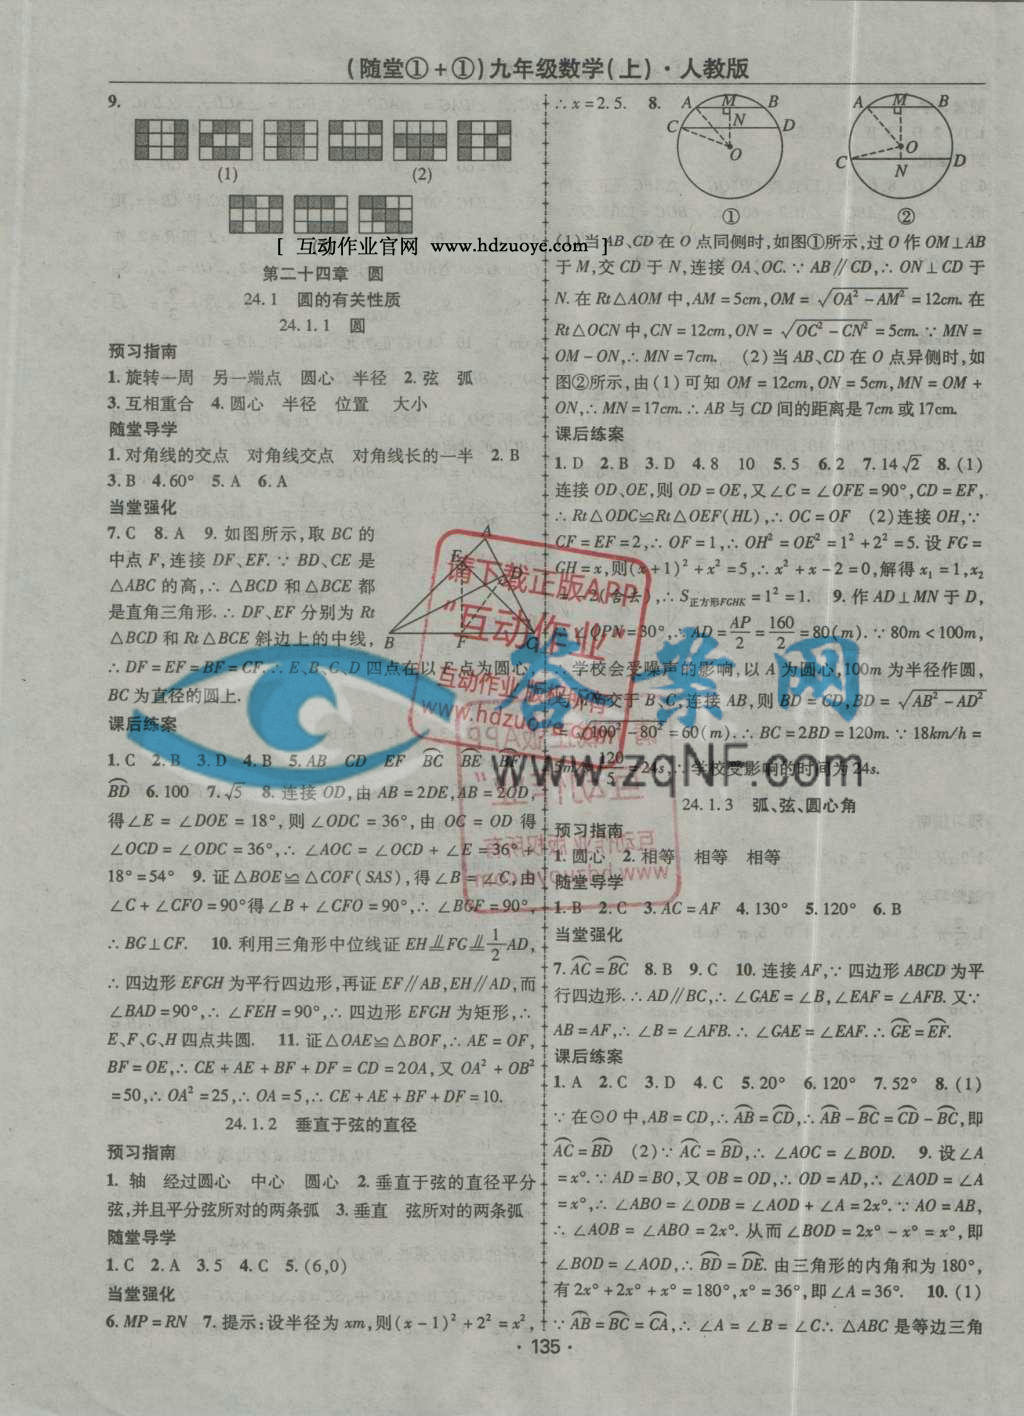 (随堂①+①)九年级数学(上)·人教版
9.
(1) (2)
[ 互动作业官网 www.hdzuoye.com ]
第二十四章 圆
24.1 圆的有关性质
24.1.1 圆
预习指南
1.旋转一周 另一端点 圆心 半径 2.弦 弧
3.互相重合 4.圆心 半径 位置 大小
随堂导学
1.对角线的交点 对角线交点 对角线长的一半 2.B
3.B 4.60° 5.A 6.A
当堂强化
7.C 8.A 9.如图所示,取BC的
中点F,连接DF、EF.∵BD、CE是
△ABC的高,∴△BCD和△BCE都
是直角三角形.∴DF、EF分别为Rt
△BCD和Rt△BCE斜边上的中线,
∴DF=EF=BF=CF.∴E、B、C、D四点在以F点为圆心,
BC为直径的圆上.
A
E
D
B F C
课后练案
1.C 2.B 3.D 4.B 5.AB CD EF B͡C B͡E B͡F
B͡D 6.100 7.√5 8.连接OD,由AB=2DE,AB=2OD,
得∠E=∠DOE=18°,则∠ODC=36°,由OC=OD得
∠OCD=∠ODC=36°,∴∠AOC=∠OCD+∠E=36°+
18°=54° 9.证△BOE≌△COF(SAS),得∠B=∠C,由
∠C+∠CFO=90°得∠B+∠CFO=90°,∴∠BGF=90°,
∴BG⊥CF. 10.利用三角形中位线证EH⫫FG⫫1/2AD,
∴四边形EFGH为平行四边形,再证EF∥AB,EH∥AD,而
∠BAD=90°,∴∠FEH=90°,∴四边形EFGH为矩形,∴
E、F、G、H四点共圆. 11.证△OAE≌△BOF,∴AE=OF,
BF=OE,∴CE+AE+BF+DF=CD=2OA,又OA²+OB²
=50,∴OA²=25,∴OA=5,∴CE+AE+BF+DF=10.
24.1.2 垂直于弦的直径
预习指南
1.轴 经过圆心 中心 圆心 2.垂直于弦的直径平分
弦,并且平分弦所对的两条弧 3.垂直 弦所对的两条弧
随堂导学
1.C 2.A 3.5 4.C 5.(6,0)
当堂强化
6.MP=RN 7.提示:设半径为xm,则(x-1)²+2²=x²,
∴x=2.5. 8.
A M B
C N D
O
①
A M B
O
C N D
②
(1)当AB、CD在O点同侧时,如图①所示,过O作OM⊥AB
于M,交CD于N,连接OA、OC.∵AB∥CD,∴ON⊥CD于
N.在Rt△AOM中,AM=5cm,OM=√(OA²-AM²)=12cm.在
Rt△OCN中,CN=12cm,ON=√(OC²-CN²)=5cm.∵MN=
OM-ON,∴MN=7cm. (2)当AB、CD在O点异侧时,如
图②所示,由(1)可知OM=12cm,ON=5cm,MN=OM+
ON,∴MN=17cm.∴AB与CD间的距离是7cm或17cm.
课后练案
1.D 2.B 3.D 4.8 10 5.5 6.2 7.14√2 8.(1)
连接OD、OE,则OD=OE,又∠C=∠OFE=90°,CD=EF,
∴Rt△ODC≌Rt△OEF(HL),∴OC=OF (2)连接OH,∵
CF=EF=2,∴OF=1,∴OH²=OE²=1²+2²=5.设FG=
GH=x,则(x+1)²+x²=5,∴x²+x-2=0,解得x₁=1,x₂
=-2(舍去),∴S正方形FGHK=1²=1. 9.作AD⊥MN于D,
∵∠QPN=30°,∴AD=AP/2=160/2=80(m).∵80m<100m,
∴学校会受噪声的影响,以A为圆心,100m为半径作圆,
交于B、C,连接AB,则BD=CD,BD=√(AB²-AD²)
=√(100²-80²)=60(m).∴BC=2BD=120m.∵18km/h=
5m/s,120/5=24s,∴学校受影响的时间为24s.
24.1.3 弧、弦、圆心角
预习指南
1.圆心 2.相等 相等 相等
随堂导学
1.B 2.C 3.AC=AF 4.130° 5.120° 6.B
当堂强化
7.A͡C=B͡C 8.B 9.C 10.连接AF,∵四边形ABCD为平
行四边形.∴AD∥BC,∴∠GAE=∠B,∠EAF=∠AFB.又∵
AB=AF,∴∠B=∠AFB.∴∠GAE=∠EAF.∴G͡E=E͡F.
课后练案
1.A 2.C 3.D 4.C 5.20° 6.120° 7.52° 8.(1)
∵在⊙O中,AB=CD,∴A͡B=C͡D,∴A͡B-B͡C=C͡D-B͡C,即
A͡C=B͡D (2)∵A͡C=B͡D,∴∠AOC=∠BOD. 9.设∠A
=x°.∵AD=BO,又OB=OD,∴OD=AD,∴∠AOD=∠A
=x°,∴∠ABO=∠ODB=∠AOD+∠A=2x°.∵AO=AB,
∴∠AOB=∠ABO=2x°.从而∠BOD=2x°-x°=x°,即
∠BOD=∠AOD,∴B͡D=D͡E.由三角形的内角和为180°,
有2x°+2x°+x°=180°,x°=36°,即∠A=36°. 10.(1)
∵A͡B=B͡C=C͡A,∴∠A=∠B=∠C∴△ABC是等边三角
·135·
请下载正版APP
"互动作业"
互动作业版权所有
www.hdzuoye.com
答案网
www.zqNF.com